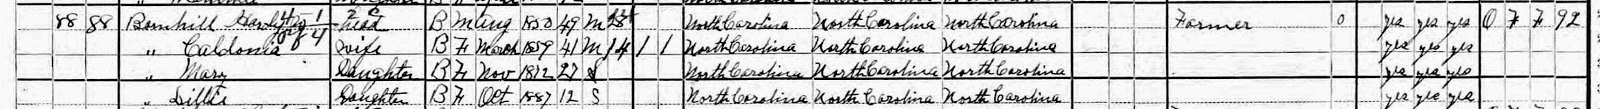 88 88 Barnhill Hardy Head B M Aug 1850 49 M North Carolina North Carolina North Carolina Farmer 0 yes yes yes O F F 92
" Caldonia Wife B F March 1859 41 M 14 1 1 North Carolina North Carolina North Carolina yes yes yes
" Mary Daughter B F Nov 1872 27 S North Carolina North Carolina North Carolina yes yes yes
" Lillie Daughter B F Oct 1887 12 S North Carolina North Carolina North Carolina yes yes yes